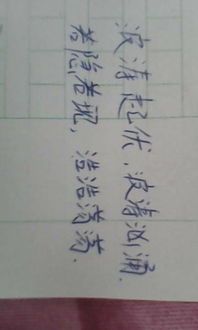 波涛起伏，波涛汹涌.
若隐若现，浩浩荡荡.